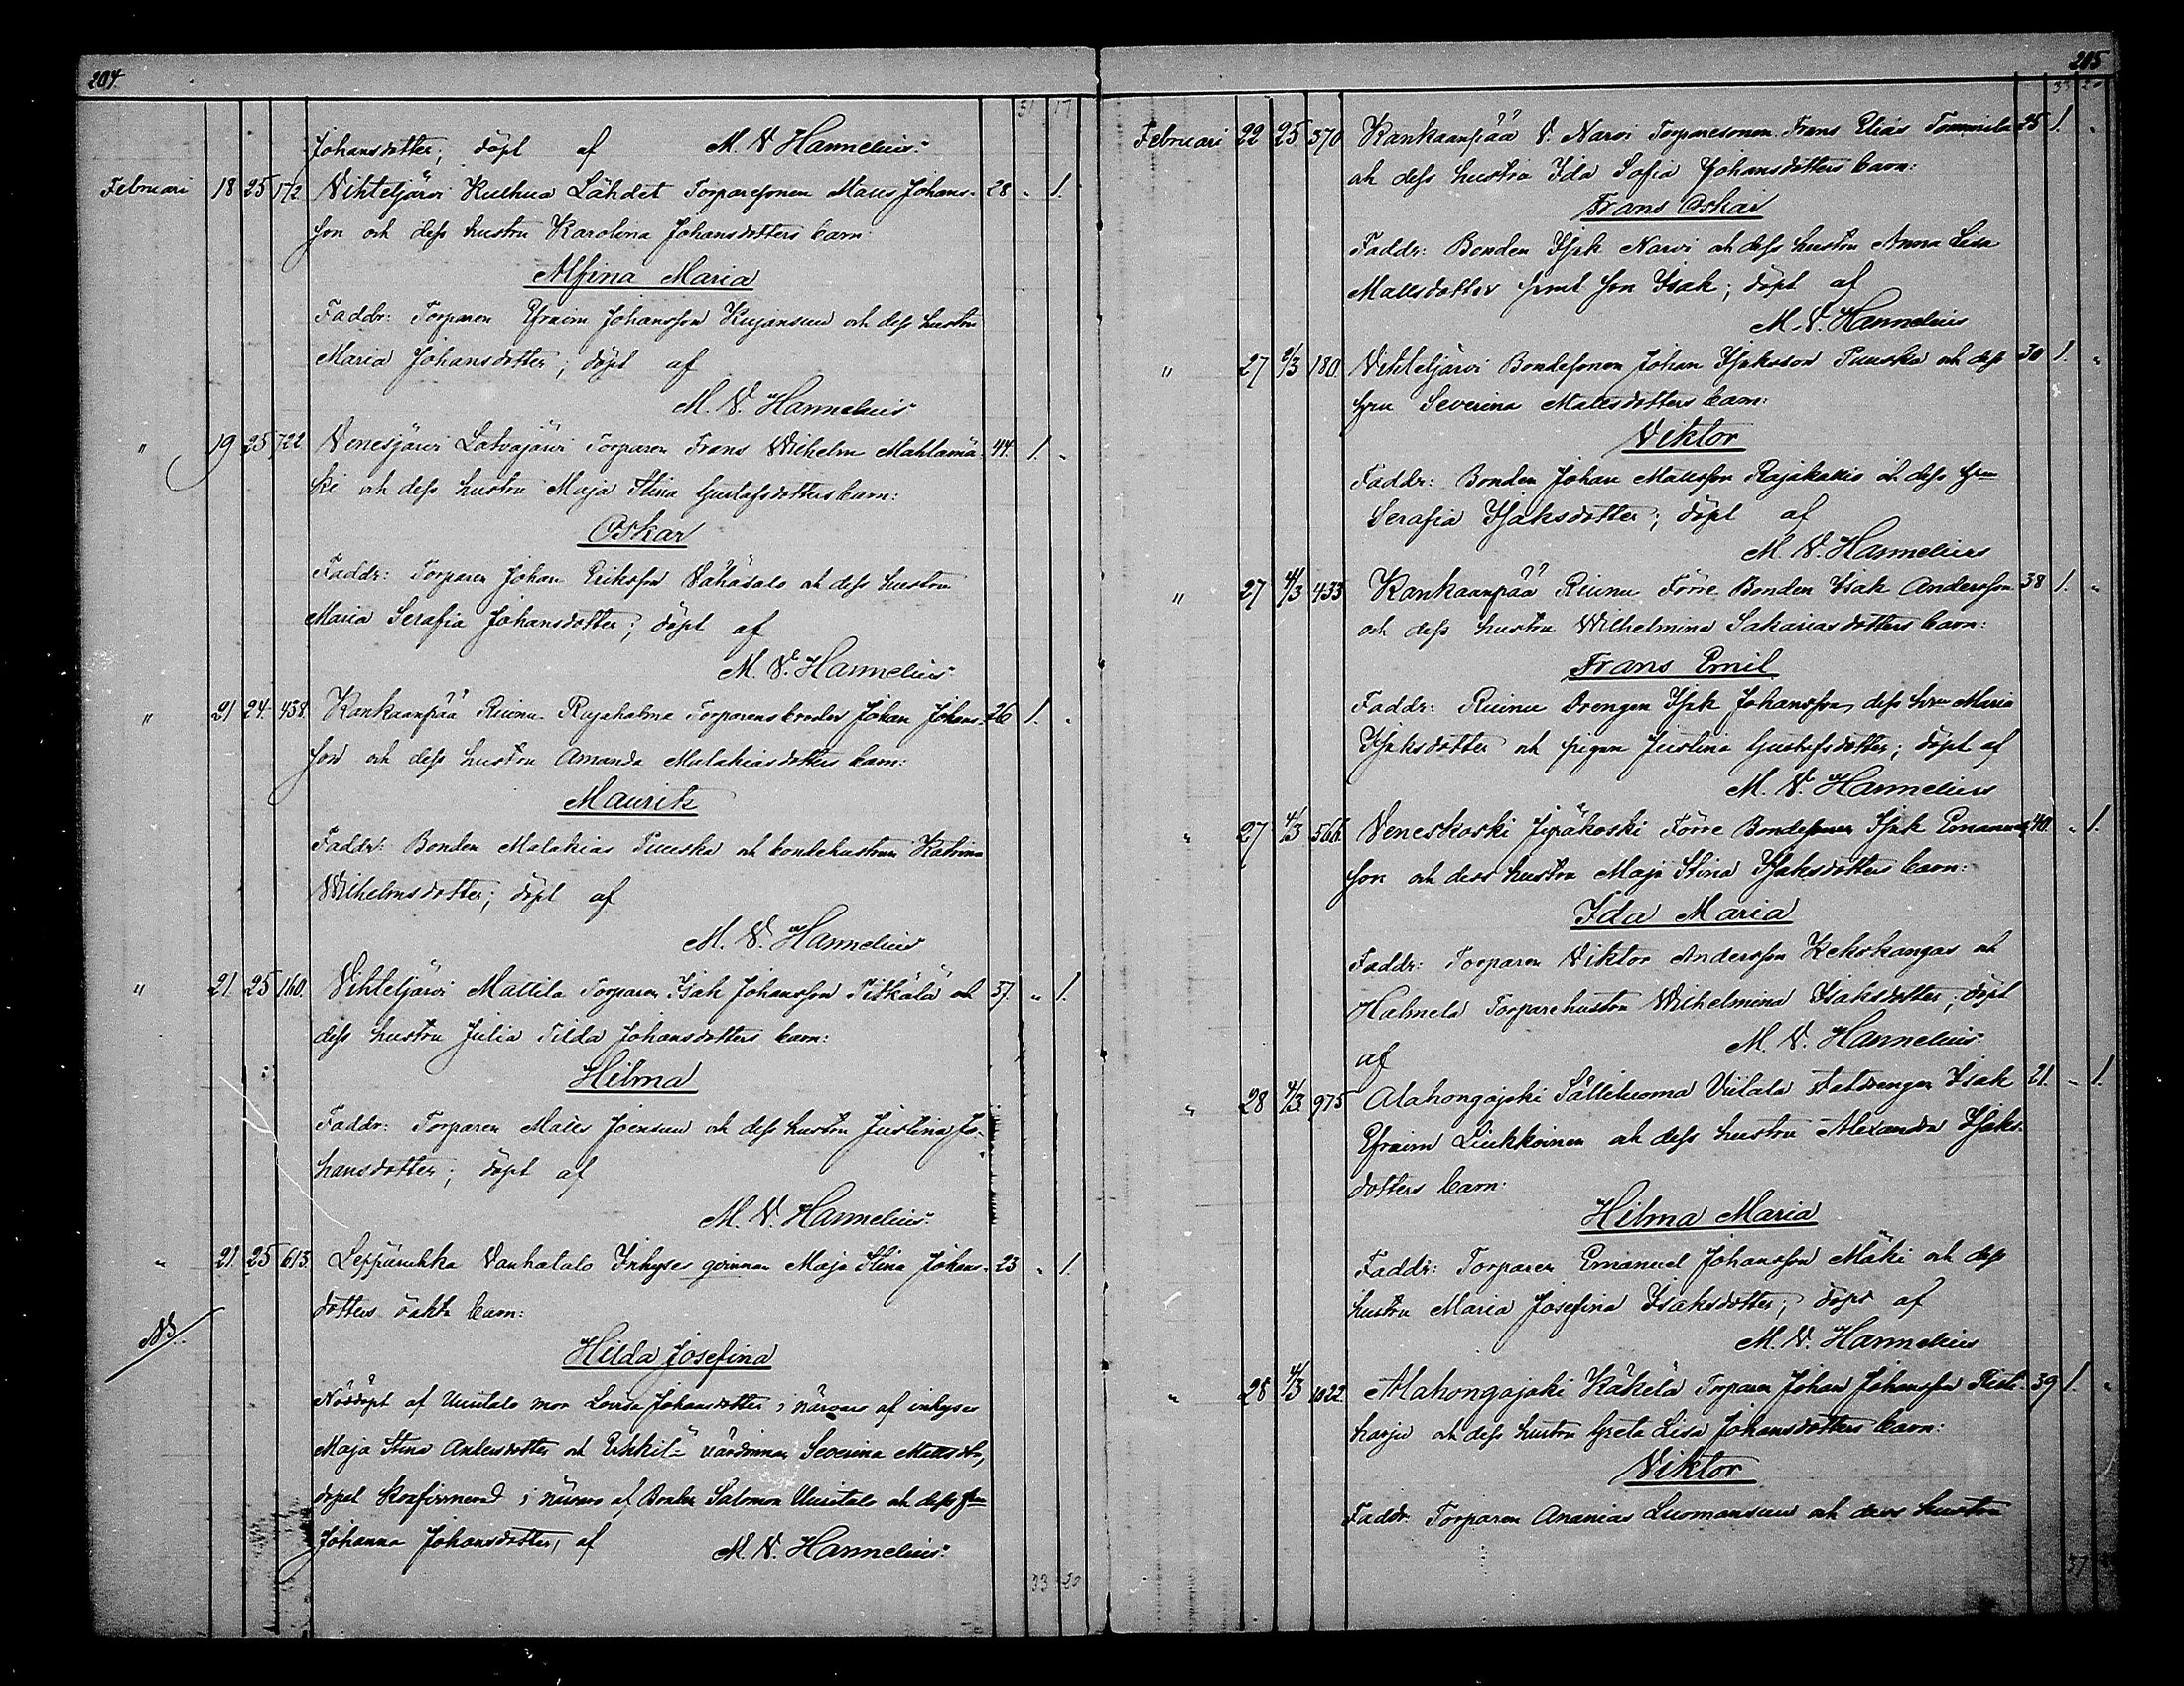 204.
31 17
Johansdotter; döpt af M. V. Hannelius.
Februari 18 25 172 Vihteljärvi Kulhua Lähdet Torparesonen Matts Johans- 28 " 1.
son och dess hustru Karolina Johansdotters barn:
Alfina Maria
Faddr: Torparen Efraim Johansson Kujansuu och dess hustru
Maria Johansdotter; döpt af
M. V. Hannelius
" 19 25 722 Venesjärvi Latvajärvi Torparen Frans Wilhelm Mahlamä- 44. 1. "
ki och dess hustru Maja Stina Gustafsdotters barn:
Oskar
Faddr: Torparen Johan Eriksson Vähäsalo och dess hustru
Maria Serafia Johansdotter; döpt af
M. V. Hannelius
" 21 24. 438. Kankaanpää Riunu Rajaholma Torparensbroder Johan Johans- 26 1. "
son och dess hustru Amanda Malakiasdotters barn:
Maurits
Faddr: Bonden Malakias Puuska och bondehustrun Katrina
Wilhelmsdotter; döpt af
M. V. Hannelius
" 21. 25 160. Vihteljärvi Mattila Torparen Isak Johansson Pitkälä och 37. " 1.
dess hustru Julia Tilda Johansdotters barn:
Hilma
Faddr: Torparen Matts Joensuu och dess hustru Justina Jo-
hansdotter; döpt af
M. V. Hannelius.
" 21. 25 613. Leppäruhka Vanhatalo Inhyses qvinnan Maja Stina Johans- 23 " 1.
dotters oäkta barn:
NB.
Hilda Josefina
Nöddöpt af Uusitalo mor Lovisa Johansdotter i närvaro af inhyses
Maja Stina Andersdotter och Erkkilä värdinnan Severina Mattsdotr,
döpet konfirmerad i närvaro af Bonden Salomon Uusitalo och dess hru
Johanna Johansdotter, af M. V. Hannelius.
33 20
205
33 20
Februari 22 25 570 Kankaanpää V. Narvi Torparesonen Frans Elias Tommila 25 1. "
och dess hustru Ida Sofia Johansdotters barn:
Frans Oskar
Faddr: Bonden Isak Narvi och dess hustru Anna Lisa
Mattsdotter samt son Isak; döpt af
M. V. Hannelius
" 27 2/3 180. Vihteljärvi Bondesonen Johan Isaksson Puuska och dess 30 1. "
hru Severina Mattsdotters barn:
Viktor
Faddr: Bonden Johan Mattsson Rajakallio och dess hru
Serafia Isaksdotter; döpt af
M. V. Hannelius
" 27 4/3 433 Kankaanpää Riunu Förre Bonden Isak Andersson 38 1. "
och dess hustru Wilhelmina Sakariasdotters barn:
Frans Emil
Faddr: Riunu Drengen Isak Johansson, dess hru Maria
Isaksdotter och pigan Justina Gustafsdotter; döpt af
M. V. Hannelius
" 27 4/3 566. Veneskoski Jipäkoski Förre Bondesonen Isak Emanuels- 40. " 1.
son och dess hustru Maja Stina Isaksdotters barn:
Ida Maria
Faddr: Torparen Viktor Andersson Kekokangas och
Halmela Torparehustru Wilhelmina Isaksdotter; döpt
af M. V. Hannelius.
" 28 4/3 975 Alahongajoki Sälliluoma Viitala Statdrengen Isak 21. " 1.
Efraim Liukkoinen och dess hustru Alexandra Isaks-
dotters barn.
Hilma Maria
Faddr: Torparen Emanuel Johansson Mäki och dess
hustru Maria Josefina Isaksdotter; döpt af
M. V. Hannelius
" 28 4/3 1022. Alahongajoki Käkelä Torparen Johan Johansson 39 1. "
harju och dess hustru Greta Lisa Johansdotters barn:
Viktor
Faddr. Torparen Ananias Luomansuu och dess hustru
37